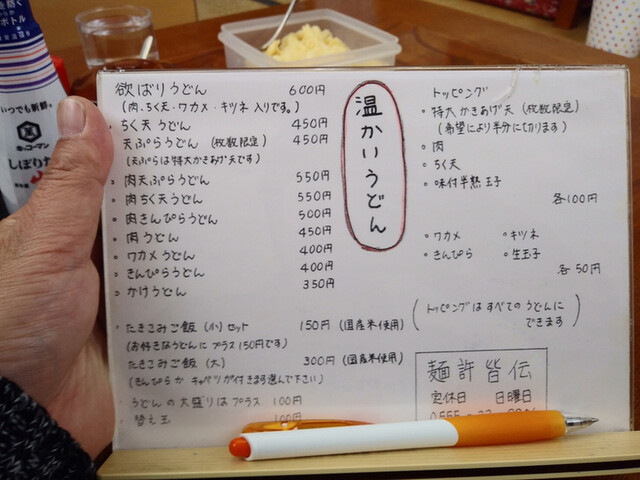 欲ばりうどん 600円
(肉、ちく天・ワカメ・キツネ入りです。)
ちく天うどん 450円
天ぷらうどん (枚数限定) 450円
(天ぷらは特大かきあげ天です)
肉天ぷらうどん 550円
肉ちく天うどん 550円
肉きんぴらうどん 500円
肉うどん 450円
ワカメうどん 400円
きんぴらうどん 400円
かけうどん 350円
たきこみご飯 (小) セット 150円 (国産米使用)
(お好きなうどんにプラス150円です)
たきこみご飯 (大) 300円 (国産米使用)
(きんぴらか キャベツが付きます選んで下さい)
うどんの大盛りはプラス 100円
替え玉 100円
温かいうどん
トッピング
・特大かきあげ天 (枚数限定)
(希望により半分に切ります)
・肉
・ちく天
・味付半熟玉子
各100円
・ワカメ ・キツネ
・きんぴら ・生玉子
各50円
(トッピングはすべてのうどんに
できます)
麺許皆伝
定休日 日曜日
いつでも新鮮
キッコーマン